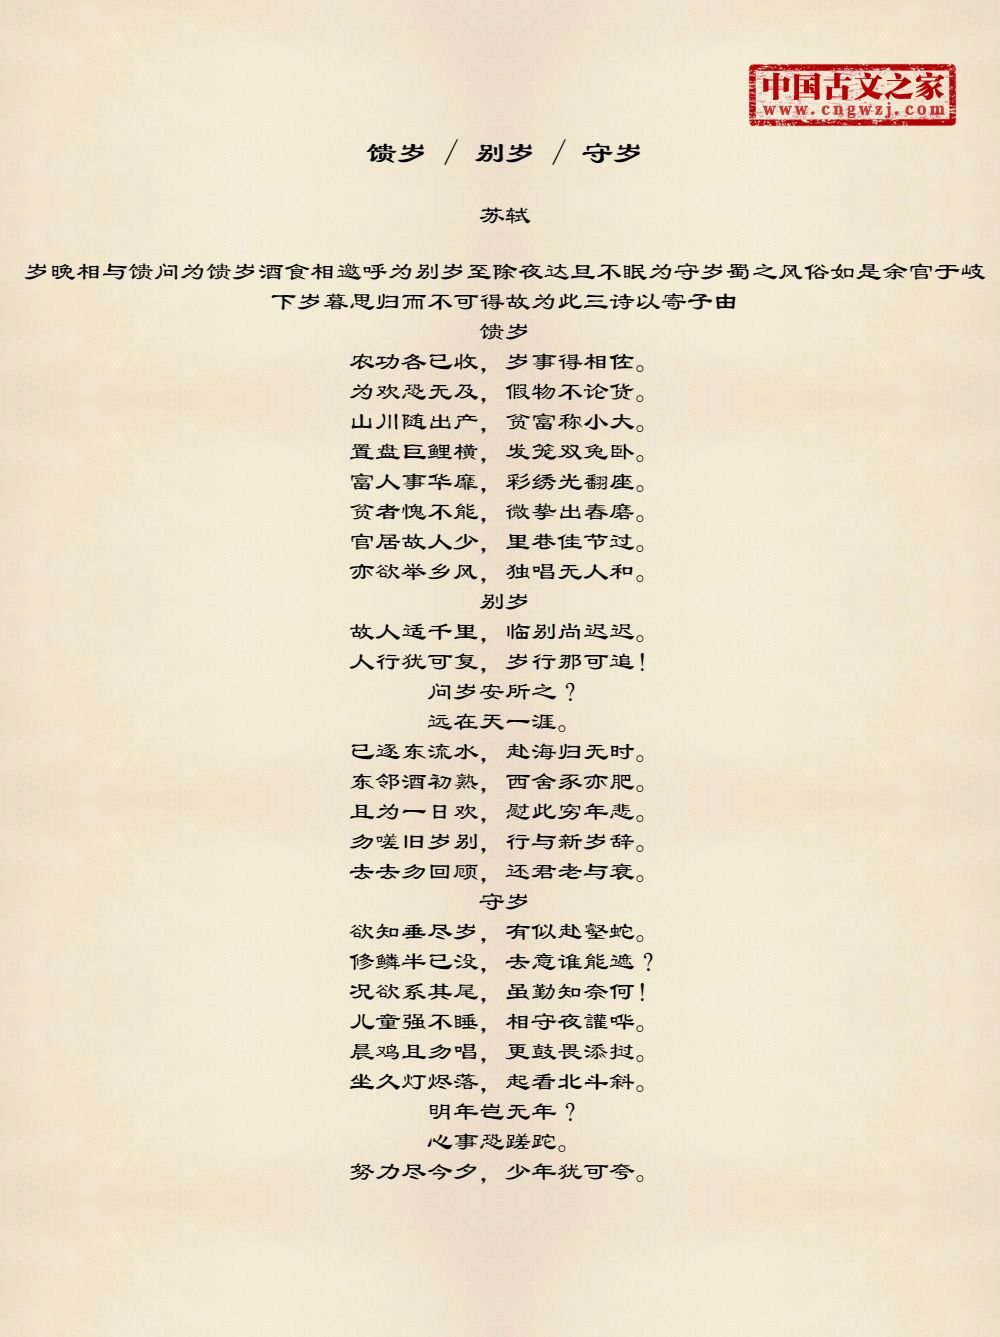 中国古文之家
www.cngwzj.com
馈岁 / 别岁 / 守岁
苏轼
岁晚相与馈问为馈岁酒食相邀呼为别岁至除夜达旦不眠为守岁蜀之风俗如是余官于岐
下岁暮思归而不可得故为此三诗以寄子由
馈岁
农功各已收，岁事得相佐。
为欢恐无及，假物不论货。
山川随出产，贫富称小大。
置盘巨鲤横，发笼双兔卧。
富人事华靡，彩绣光翻座。
贫者愧不能，微挚出舂磨。
官居故人少，里巷佳节过。
亦欲举乡风，独唱无人和。
别岁
故人适千里，临别尚迟迟。
人行犹可复，岁行那可追！
问岁安所之？
远在天一涯。
已逐东流水，赴海归无时。
东邻酒初熟，西舍豕亦肥。
且为一日欢，慰此穷年悲。
勿嗟旧岁别，行与新岁辞。
去去勿回顾，还君老与衰。
守岁
欲知垂尽岁，有似赴壑蛇。
修鳞半已没，去意谁能遮？
况欲系其尾，虽勤知奈何！
儿童强不睡，相守夜讙哗。
晨鸡且勿唱，更鼓畏添挝。
坐久灯烬落，起看北斗斜。
明年岂无年？
心事恐蹉跎。
努力尽今夕，少年犹可夸。